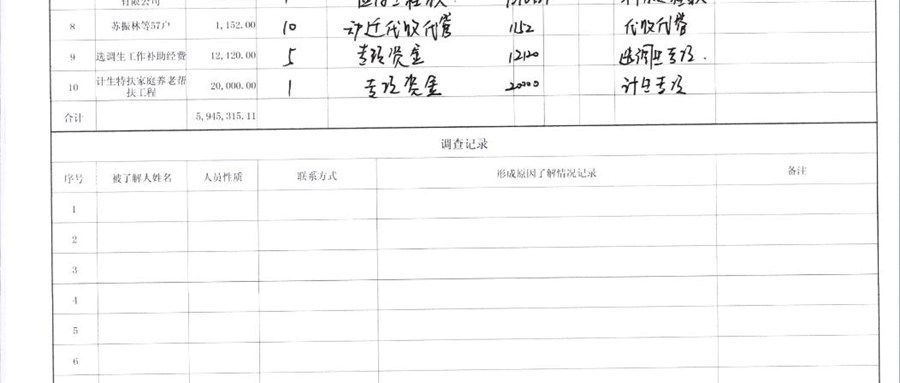 有限公司
8 苏振林等57户 1,152.00 10 动迁代收代管 1152 代收代管
9 选调生工作补助经费 12,120.00 5 专项资金 12120 选调生专项.
10 计生特扶家庭养老帮扶工程 20,000.00 1 专项资金 20000 计生专项
合计 5,945,315.11
调查记录
序号 被了解人姓名 人员性质 联系方式 形成原因了解情况记录 备注
1
2
3
4
5
6